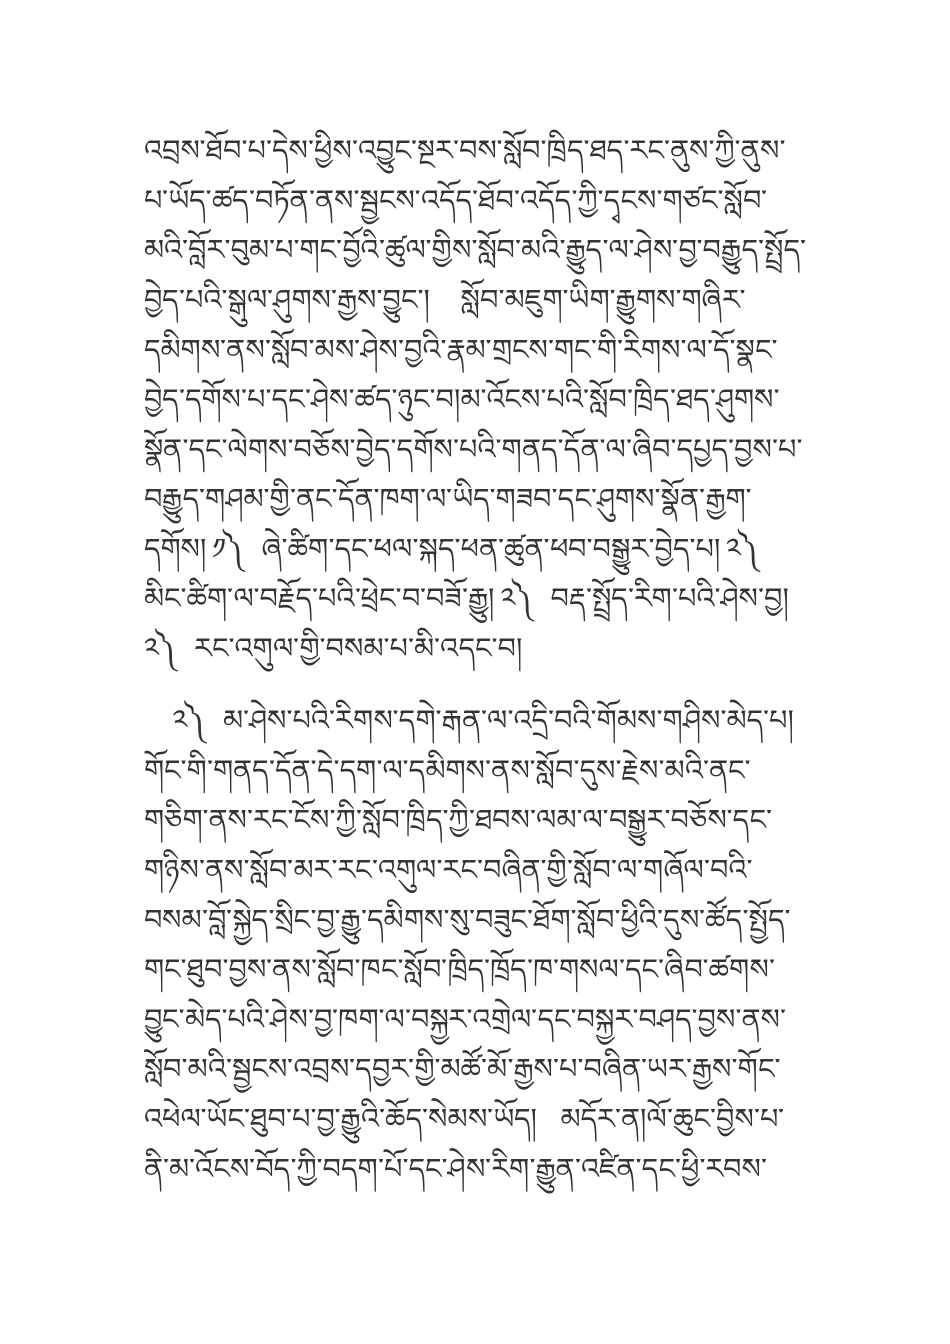 འབྲས་ཐོབ་པ་དེས་ཕྱིས་འབྱུང་སྔར་བས་སློབ་ཁྲིད་ཐད་རང་ནུས་ཀྱི་ནུས་
པ་ཡོད་ཚད་བཏོན་ནས་སྦྱངས་འདོད་ཐོབ་འདོད་ཀྱི་དྭངས་གཙང་སློབ་
མའི་བློར་བུམ་པ་གང་བྱོའི་ཚུལ་གྱིས་སློབ་མའི་རྒྱུད་ལ་ཤེས་བྱ་བརྒྱུད་སྤྲོད་
བྱེད་པའི་སྐུལ་ཤུགས་རྒྱས་བྱུང་། སློབ་མཇུག་ཡིག་རྒྱུགས་གཞིར་
དམིགས་ནས་སློབ་མས་ཤེས་བྱའི་རྣམ་གྲངས་གང་གི་རིགས་ལ་དོ་སྣང་
བྱེད་དགོས་པ་དང་ཤེས་ཚད་ཉུང་བ།མ་འོངས་པའི་སློབ་ཁྲིད་ཐད་ཤུགས་
སྣོན་དང་ལེགས་བཅོས་བྱེད་དགོས་པའི་གནད་དོན་ལ་ཞིབ་དཔྱད་བྱས་པ་
བརྒྱུད་གཤམ་གྱི་ནང་དོན་ཁག་ལ་ཡིད་གཟབ་དང་ཤུགས་སྣོན་རྒྱག་
དགོས། ༡༽ ཞེ་ཚིག་དང་ཕལ་སྐད་ཕན་ཚུན་ཕབ་བསྒྱུར་བྱེད་པ། ༢༽
མིང་ཚིག་ལ་བརྗོད་པའི་ཕྲེང་བ་བཟོ་རྒྱུ། ༢༽ བརྡ་སྤྲོད་རིག་པའི་ཤེས་བྱ།
༢༽ རང་འགུལ་གྱི་བསམ་པ་མི་འདང་བ།
༢༽ མ་ཤེས་པའི་རིགས་དགེ་རྒན་ལ་འདྲི་བའི་གོམས་གཤིས་མེད་པ།
གོང་གི་གནད་དོན་དེ་དག་ལ་དམིགས་ནས་སློབ་དུས་རྗེས་མའི་ནང་
གཅིག་ནས་རང་ངོས་ཀྱི་སློབ་ཁྲིད་ཀྱི་ཐབས་ལམ་ལ་བསྒྱུར་བཅོས་དང་
གཉིས་ནས་སློབ་མར་རང་འགུལ་རང་བཞིན་གྱི་སློབ་ལ་གཞོལ་བའི་
བསམ་བློ་སྐྱེད་སྲིང་བྱ་རྒྱུ་དམིགས་སུ་བཟུང་ཐོག་སློབ་ཕྱིའི་དུས་ཚོད་སྤྱོད་
གང་ཐུབ་བྱས་ནས་སློབ་ཁང་སློབ་ཁྲིད་ཁྲོད་ཁ་གསལ་དང་ཞིབ་ཚགས་
བྱུང་མེད་པའི་ཤེས་བྱ་ཁག་ལ་བསྐྱར་འགྲེལ་དང་བསྐྱར་བཤད་བྱས་ནས་
སློབ་མའི་སྦྱངས་འབྲས་དབྱར་གྱི་མཚོ་མོ་རྒྱས་པ་བཞིན་ཡར་རྒྱས་གོང་
འཕེལ་ཡོང་ཐུབ་པ་བྱ་རྒྱུའི་ཆོད་སེམས་ཡོད། མདོར་ན།ལོ་ཆུང་བྱིས་པ་
ནི་མ་འོངས་བོད་ཀྱི་བདག་པོ་དང་ཤེས་རིག་རྒྱུན་འཛིན་དང་ཕྱི་རབས་